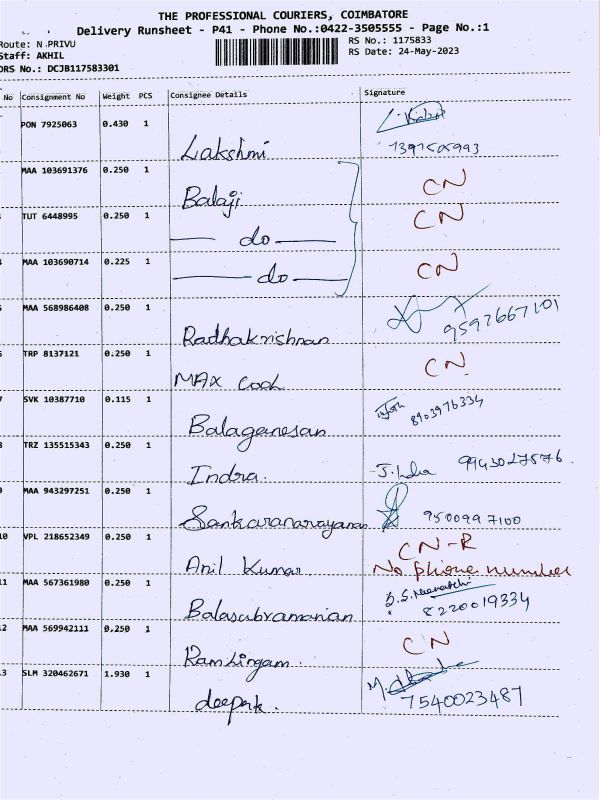 THE PROFESSIONAL COURIERS, COIMBATORE
Delivery Runsheet - P41 - Phone No.:0422-3505555 - Page No.:1
Route: N PRIVU
RS No.: 1175833
Staff: AKHIL
RS Date: 24-May-2023
DRS No.: DCJB117583301
No Consignment No Weight PCS Consignee Details Signature
PON 7925063 0.430 1
Lakshmi
MAA 103691376 0.250 1 CN
Balaji
TUT 6448995 0.250 1 CN
do
MAA 103690714 0.225 1 CN
do
MAA 568986408 0.250 1
Radhakrishnan 9597667101
TRP 8137121 0.250 1 CN
MAX Cool
SVK 10387710 0.115 1 8903976334
Balaganesan
TRZ 135515343 0.250 1
Indra. 9943027576.
MAA 943297251 0.250 1
Sankaranarayanan 9500997100
10 VPL 218652349 0.250 1 CN-R
Anil Kumar No phone number
11 MAA 567361980 0.250 1
Balasubramanian 8220019334
12 MAA 569942111 0.250 1 CN
Ramlingam
13 SLM 320462671 1.930 1
deepak. 7540023487